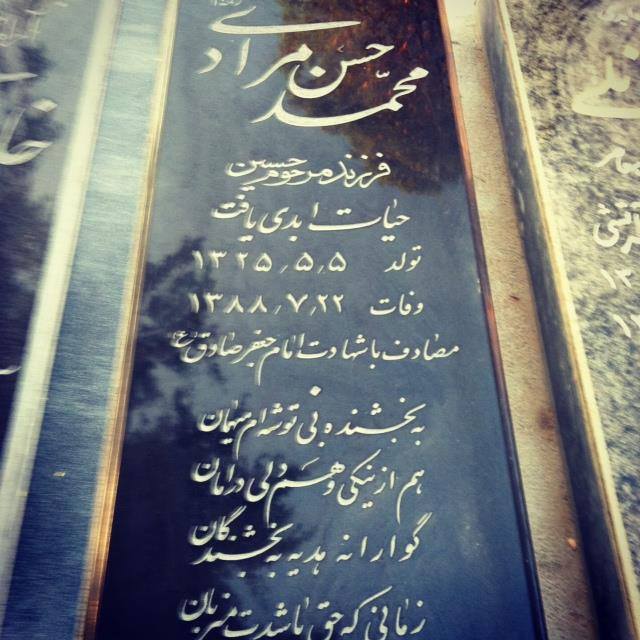 محمد حسن مرادی
فرزند مرحوم حسین
حیات ابدی یافت
تولد ۱۳۲۵٫۵٫۵
وفات ۱۳۸۸٫۷٫۲۲
مصادف با شهادت امام جعفر صادق (ع)
بخشنده نی توشه ام میهمان
هم از نیکی و هم دلی در امان
گوارا نه هدیه به بخشندگان
زمانی که حق باشدت میزبان